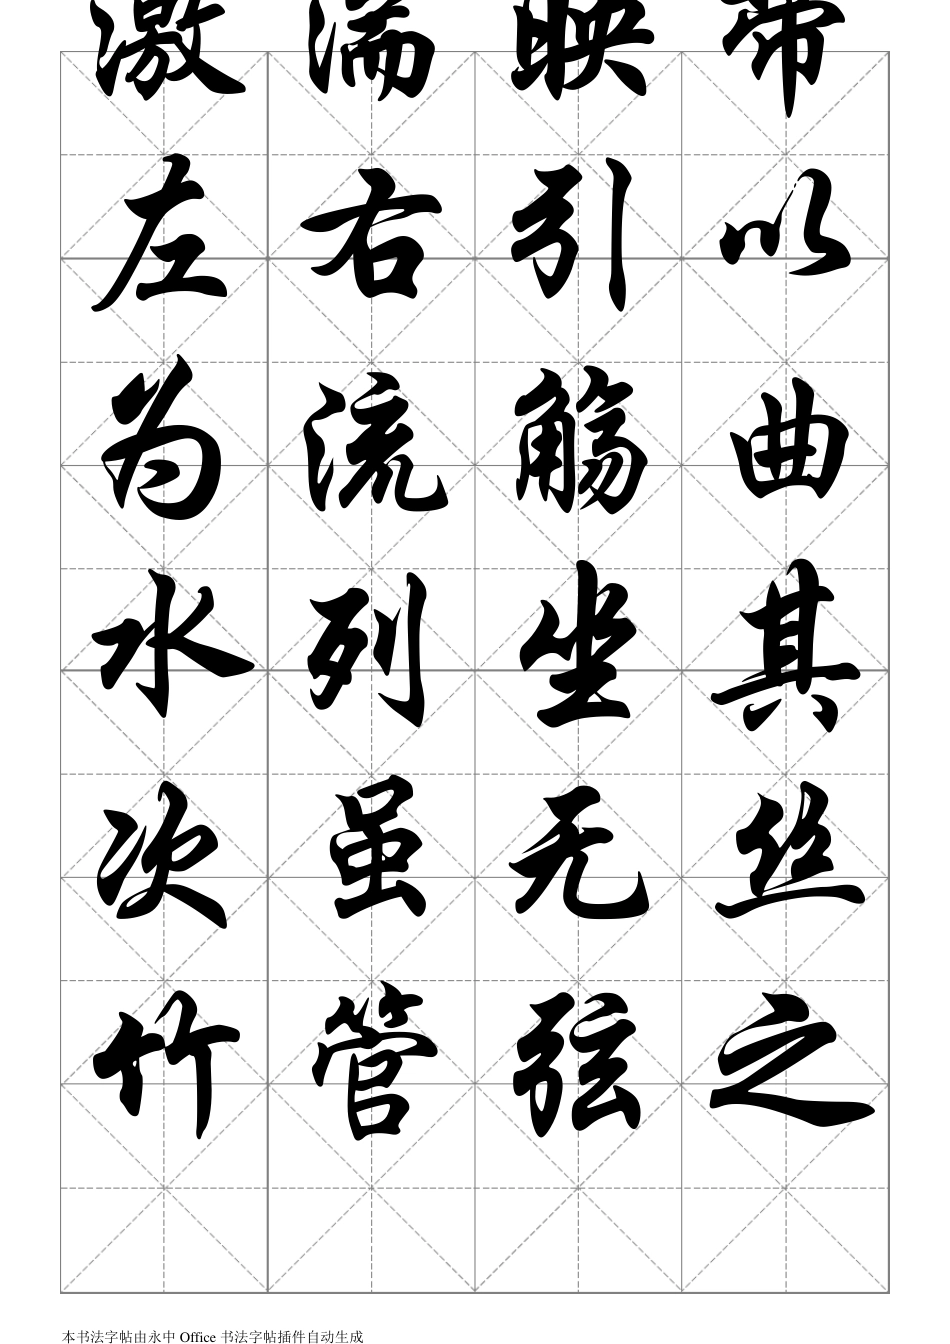 激湍映带
左右引以
为流觞曲
水列坐其
次虽无丝
竹管弦之
本书法字帖由永中 Office 书法字帖插件自动生成